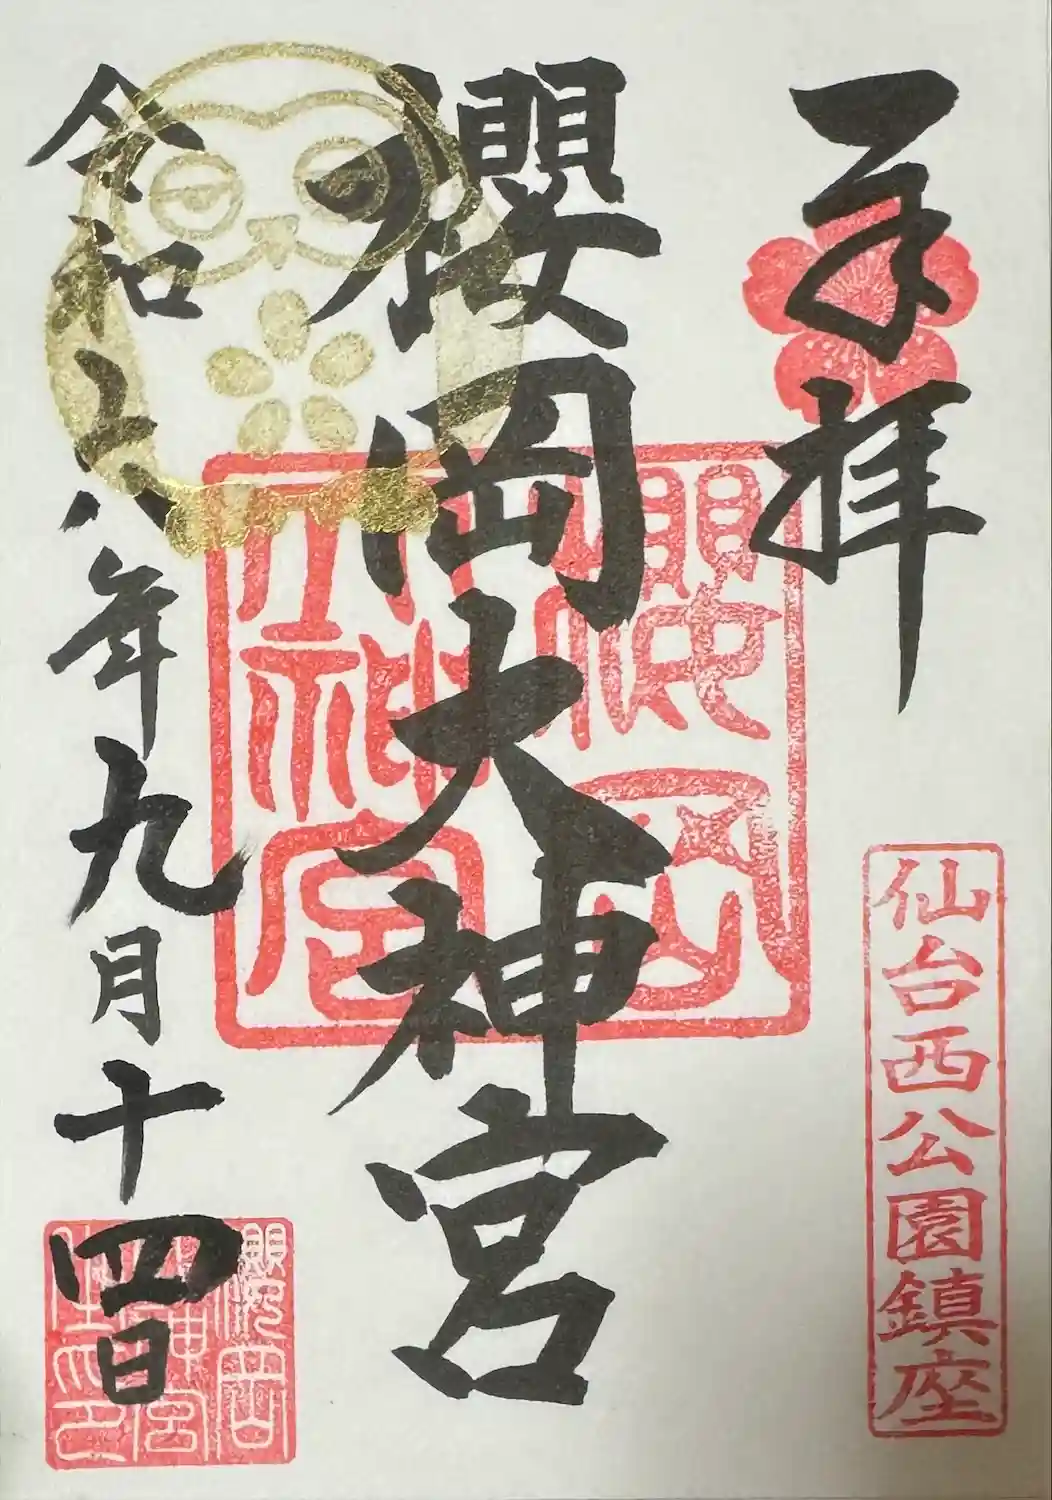 奉拝
仙台西公園鎮座
櫻岡大神宮
櫻岡
大神宮
令和六年九月十四日
櫻岡
大神宮